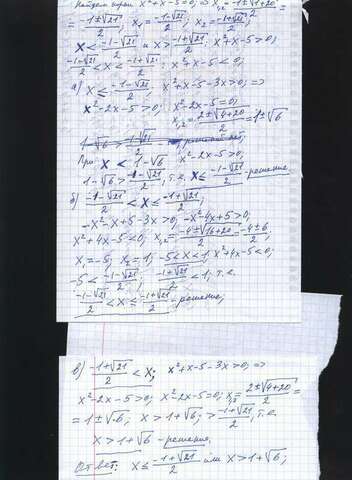 Найдем корни x²+x-5=0; ⇒ x₁,₂ = (-1±√(1+20))/2 =
= (-1±√21)/2; x₁ = (-1-√21)/2; x₂ = (-1+√21)/2;
x < (-1-√21)/2 и x > (-1+√21)/2; x²+x-5>0;
(-1-√21)/2 < x < (-1+√21)/2; x²+x-5<0;
а) x ≤ (-1-√21)/2; x²+x-5-3x>0; ⇒
x²-2x-5>0; x²-2x-5=0;
x₁,₂ = (2±√(4+20))/2 = 1±√6
При x < 1-√6 x²-2x-5>0;
1-√6 > (-1-√21)/2, т.е. x ≤ (-1-√21)/2 - решение
б) (-1-√21)/2 < x ≤ (-1+√21)/2;
-x²-x+5-3x>0; -x²-4x+5>0;
x²+4x-5<0; x₁,₂ = (-4±√(16+20))/2 = (-4±6)/2
x₁=-5; x₂=1; -5<x<1; x²+4x-5<0;
-5 < (-1-√21)/2; (-1+√21)/2 < 1, т.е.
(-1-√21)/2 < x ≤ (-1+√21)/2 - решение;
в) (-1+√21)/2 < x; x²+x-5-3x>0; ⇒
x²-2x-5>0; x²-2x-5=0; x₁,₂ = (2±√(4+20))/2 =
= 1±√6, x>1+√6; > (-1+√21)/2, т.е.
x>1+√6 - решение.
Ответ: x ≤ (-1+√21)/2 или x>1+√6;